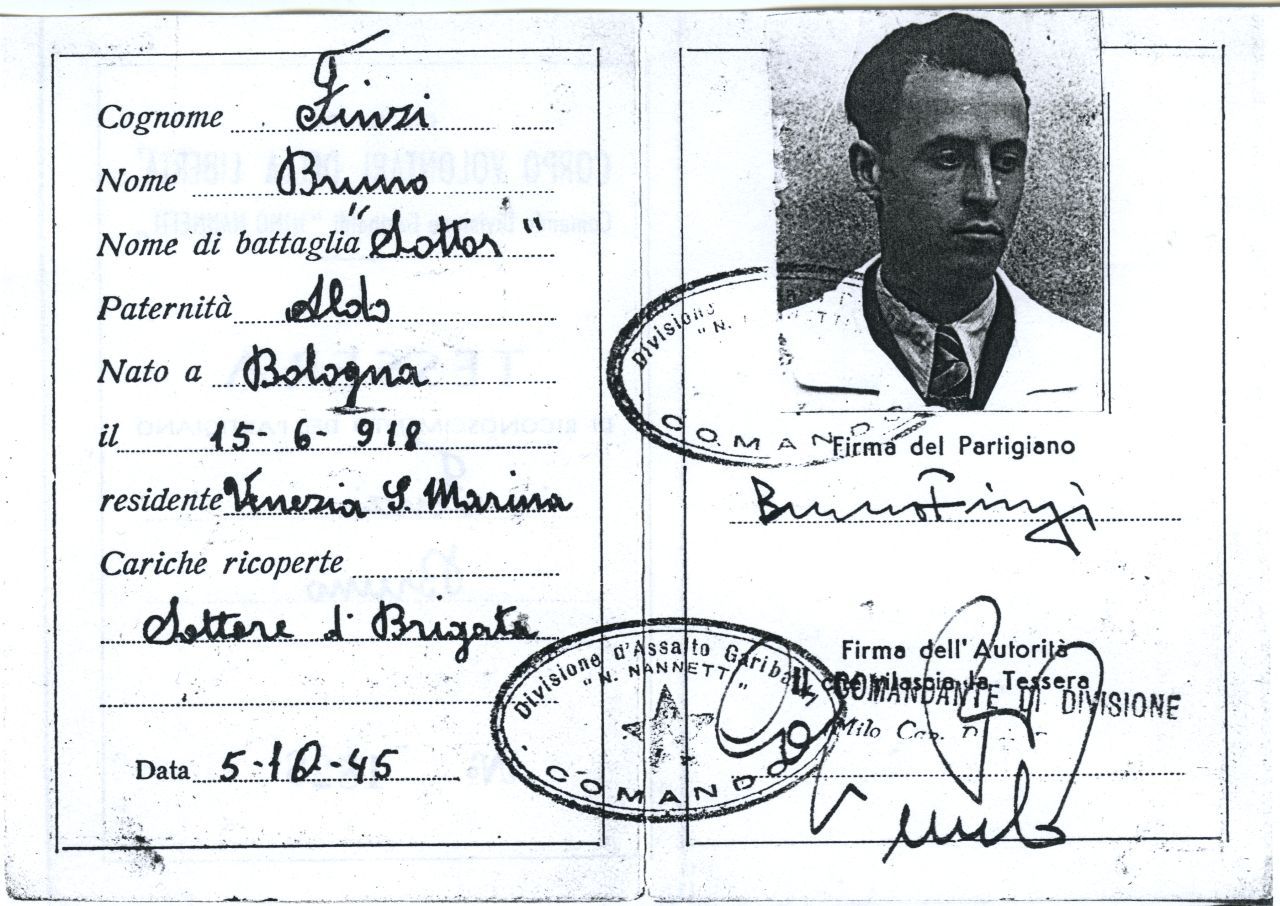 Cognome Finzi
Nome Bruno
Nome di battaglia "Sottor"
Paternità Aldo
Nato a Bologna
il 15-6-918
residente Venezia S. Marina
Cariche ricoperte
Sottore d'Brigata
Data 5-10-45
Divisione
"N.
COMANDO
Firma del Partigiano
Bruno Finzi
Divisione d'Assalto Garibaldi
"N. NANNETTI"
COMANDO
Firma dell'Autorità
che rilascia la Tessera
IL COMANDANTE DI DIVISIONE
Milo